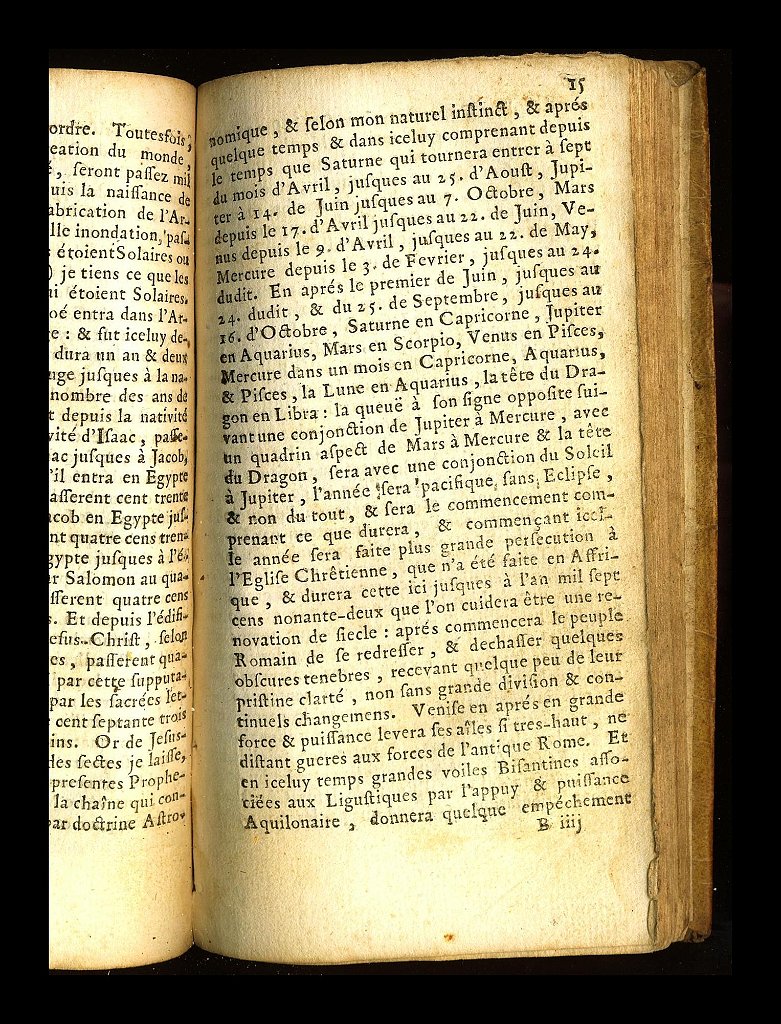 ordre. Toutesfois,
eation du monde,
é, seront passez mil
uis la naissance de
abrication de l'Ar-
lle inondation, passa
s étoient Solaires ou
) je tiens ce que les
ui étoient Solaires.
oé entra dans l'Ar-
e : & fut iceluy de-
dura un an & deux
uge jusques à la na-
nombre des ans de
t depuis la nativité
vité d'Isaac, passe-
ac jusques à Jacob,
'il entra en Egypte
asserent cent trente
acob en Egypte jus-
nt quatre cens trent
gypte jusques à l'é-
r Salomon au qua-
sserent quatre cens
s. Et depuis l'édifi-
esus-Christ, selon
es, passerent qua-
par cette supputa-
par les sacrées let-
cent septante trois
ins. Or de Jesus-
des sectes je laisse,
presentes Prophe-
la chaîne qui con-
par doctrine Astro-
15
nomique, & selon mon naturel instinct, & aprés
quelque temps & dans iceluy comprenant depuis
le temps que Saturne qui tournera entrer à sept
du mois d'Avril, jusques au 25. d'Aoust, Jupi-
ter à 14. de Juin jusques au 7. Octobre, Mars
depuis le 17. d'Avril jusques au 22. de Juin, Ve-
nus depuis le 9. d'Avril, jusques au 22. de May,
Mercure depuis le 3. de Fevrier, jusques au 24.
dudit. En aprés le premier de Juin, jusques au
24. dudit, & du 25. de Septembre, jusques au
16. d'Octobre, Saturne en Capricorne, Jupiter
en Aquarius, Mars en Scorpio, Venus en Pisces,
Mercure dans un mois en Capricorne, Aquarius,
& Pisces, la Lune en Aquarius, la tête du Dra-
gon en Libra : la queuë à son signe opposite sui-
vant une conjonction de Jupiter à Mercure, avec
un quadrin aspect de Mars à Mercure & la tête
du Dragon, sera avec une conjonction du Soleil
à Jupiter, l'année sera pacifique sans Eclipse,
& non du tout, & sera le commencement com-
prenant ce que durera, & commençant icel-
le année sera faite plus grande persecution à
l'Eglise Chrêtienne, que n'a été faite en Affri-
que, & durera cette ici jusques à l'an mil sept
cens nonante-deux que l'on cuidera être une re-
novation de siecle : aprés commencera le peuple
Romain de se redresser, & dechasser quelques
obscures tenebres, recevant quelque peu de leur
pristine clarté, non sans grande division & con-
tinuels changemens. Venise en aprés en grande
force & puissance levera ses aîles si tres-haut, ne
distant gueres aux forces de l'antique Rome. Et
en iceluy temps grandes voiles Bisantines asso-
ciées aux Ligustiques par l'appuy & puissance
Aquilonaire, donnera quelque empéchement
B iiij